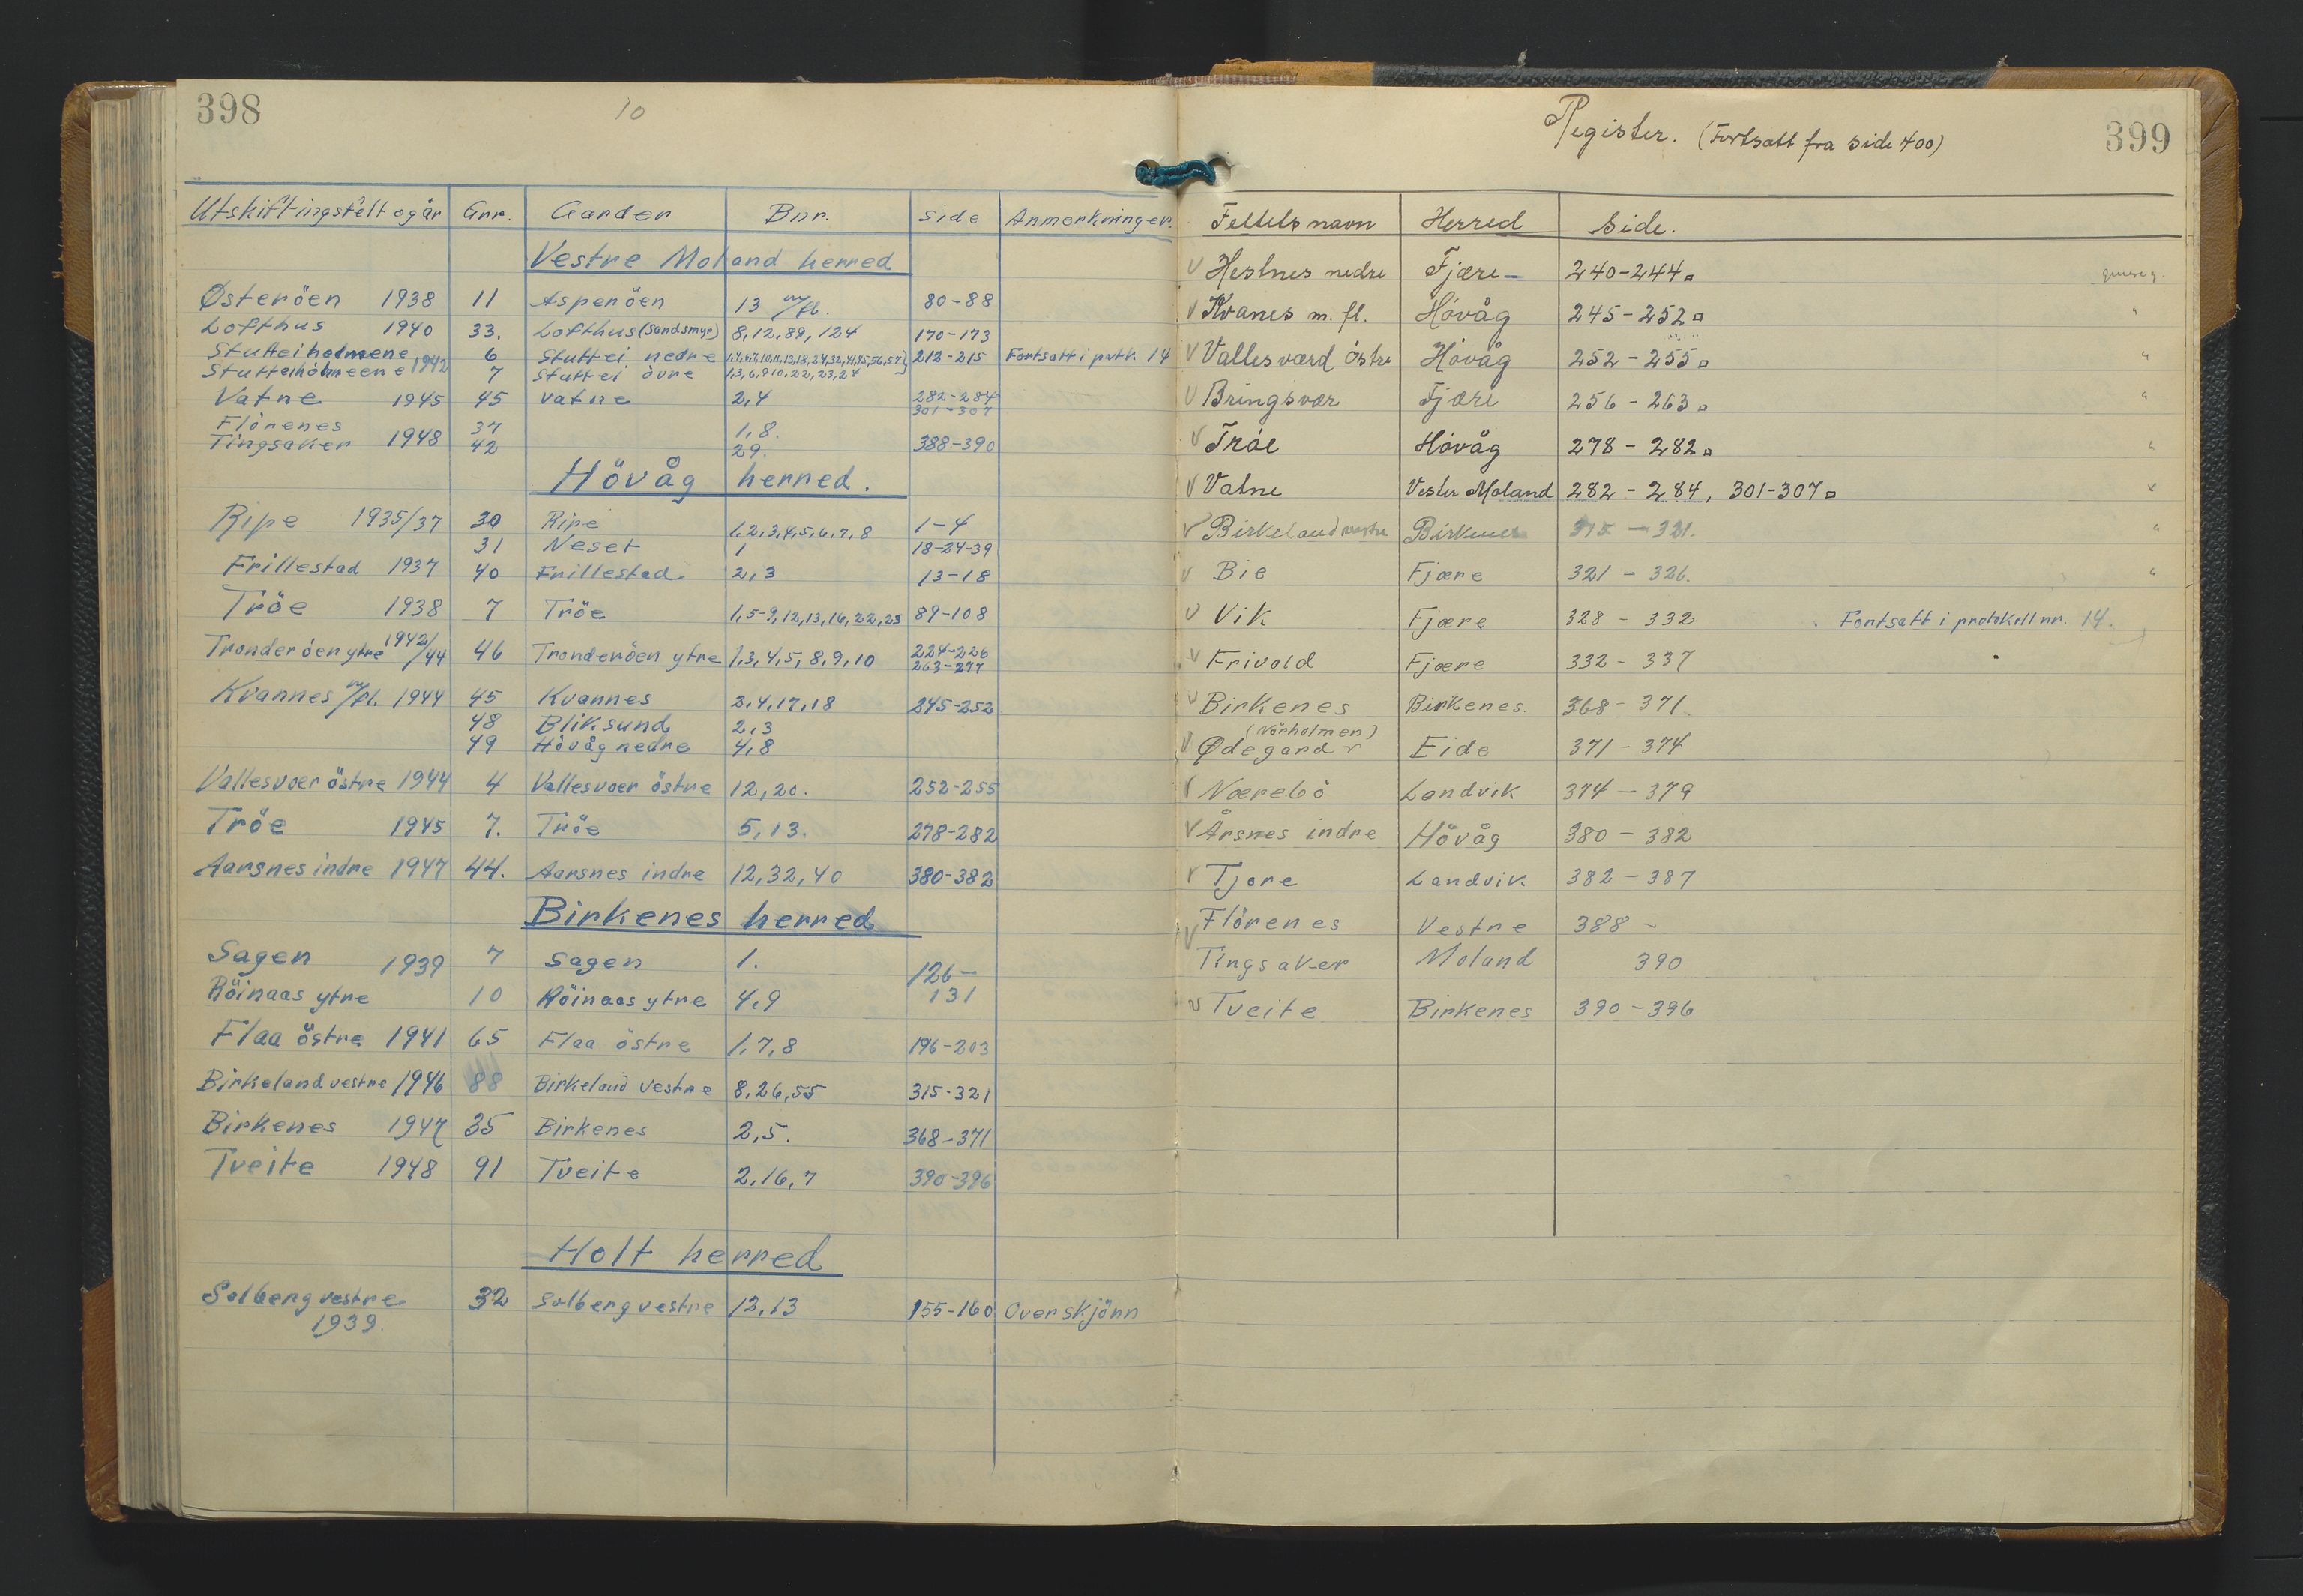 398
10
Utskiftingsfelt og år Gnr. Gander Bnr. Side Anmerkninger.
Vestre Moland herred
Østeröen 1938 11 Asperöen 13 m/fl. 80-88
Lofthus 1940 33. Lofthus (Sandsmyr) 8,12,89,124 170-173
Stutteiholmene 6 Stuttei nedre 212-215 Fortsatt i protk. 14
Stutteiholmeene 1942 7 Stuttei övre 1,3,6,9,10,22,23,24
Vatne 1945 45 Vatne 2,4 282-284
301-307
Flörenes 37 1,8.
Tingsaker 1948 42 29. 388-390
Hövåg herred.
Ripe 1935/37 30 Ripe 1,2,3,4,5,6,7,8 1-4
31 Neset 1 18-24-39
Frillestad 1937 40 Frillestad 2,3 13-18
Tröe 1938 7 Tröe 1,5-9,12,13,16,22,23 89-108
Tronderöen ytre 1942/44 46 Tronderöen ytre 1,3,4,5,8,9,10 224-226
263-277
Kvannes m/fl. 1944 45 Kvannes 2,4,17,18 245-252
48 Bliksund 2,3
49 Hövåg nedre 4,8
Vallesvær östre 1944 4 Vallesvær östre 12,20. 252-255
Tröe 1945 7. Tröe 5,13. 278-282
Aarsnes indre 1947 44. Aarsnes indre 12,32,40 380-382
Birkenes herred
Sagen 1939 7 Sagen 1. 126-
Röinaas ytre 10 Röinaas ytre 4,9 131
Flaa östre 1941 65 Flaa östre 1,7,8 196-203
Birkeland vestre 1946 88 Birkeland vestre 8,26,55 315-321
Birkenes 1947 35 Birkenes 2,5. 368-371
Tveite 1948 91 Tveite 2,16,7 390-396
Holt herred
Solberg vestre 32 Solberg vestre 12,13 155-160 Overskjönn
1939.
Register. (Fortsatt fra side 400)
399
Feltets navn Herred Side.
Hestnes nedre Fjære 240-244
Kvanes m. fl. Hövåg 245-252 "
Vallesværd östre Hövåg 252-255 "
Bringsvær Fjære 256-263 "
Tröe Hövåg 278-282 "
Vatne Vestre Moland 282-284, 301-307 "
Birkeland vestre Birkenes 315-321. "
Bie Fjære 321-326. "
Vik Fjære 328-332 Fortsatt i protokoll nr. 14.
Frivold Fjære 332-337
Birkenes Birkenes. 368-371
(Vårholmen)
Ødegard Eide 371-374
Nærebö Landvik 374-379
Årsnes indre Hövåg 380-382
Tjore Landvik 382-387
Flörenes Vestre 388-
Tingsaker Moland 390
Tveite Birkenes 390-396